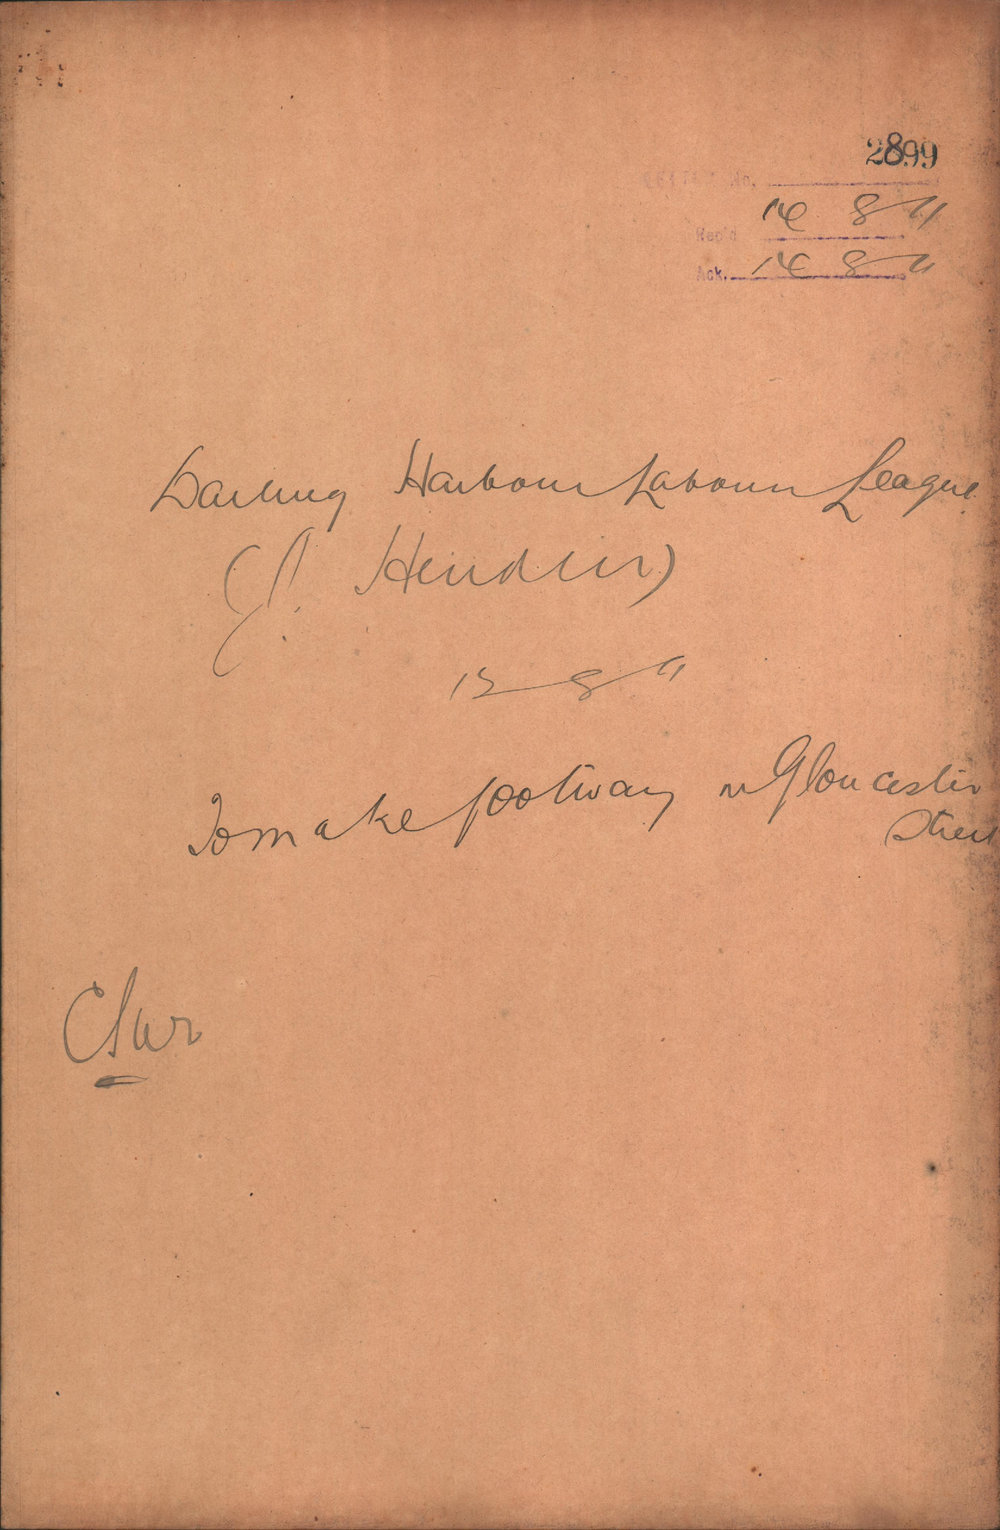 2899
No.
Rec'd 14 8 11
Ack. 14 8 11
Darling Harbour Labour League
(J. Hendin)
12 8 11
To make footway in Gloucester
Street